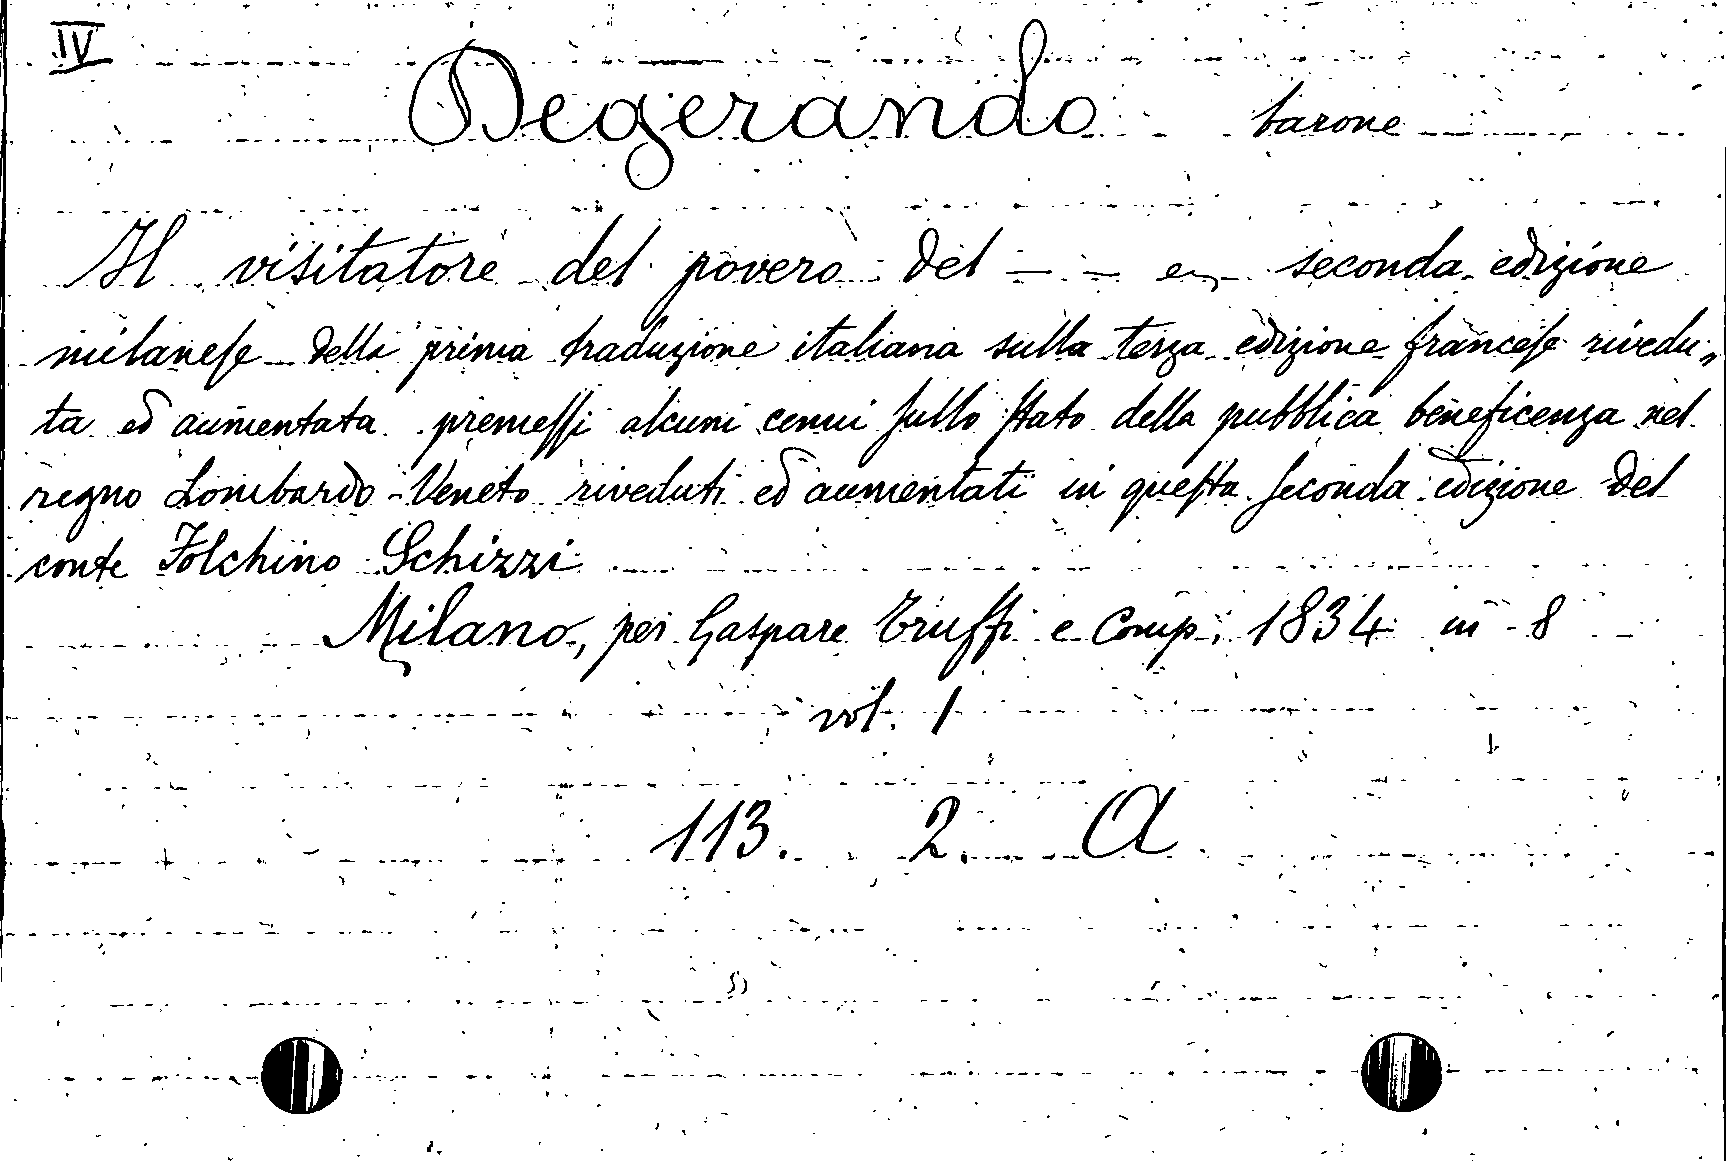 IV
Degerando barone
Il visitatore del povero del — — seconda edizione
milanese della prima traduzione italiana sulla terza edizione francese rivedu„
ta ed aumentata premessi alcuni cenni sullo stato della pubblica beneficenza nel
regno Lombardo-Veneto riveduti ed aumentati in questa seconda edizione del
conte Folchino Schizzi
Milano, per Gaspare Truffi e Comp. 1834 in 8
vol. 1
113. 2. A